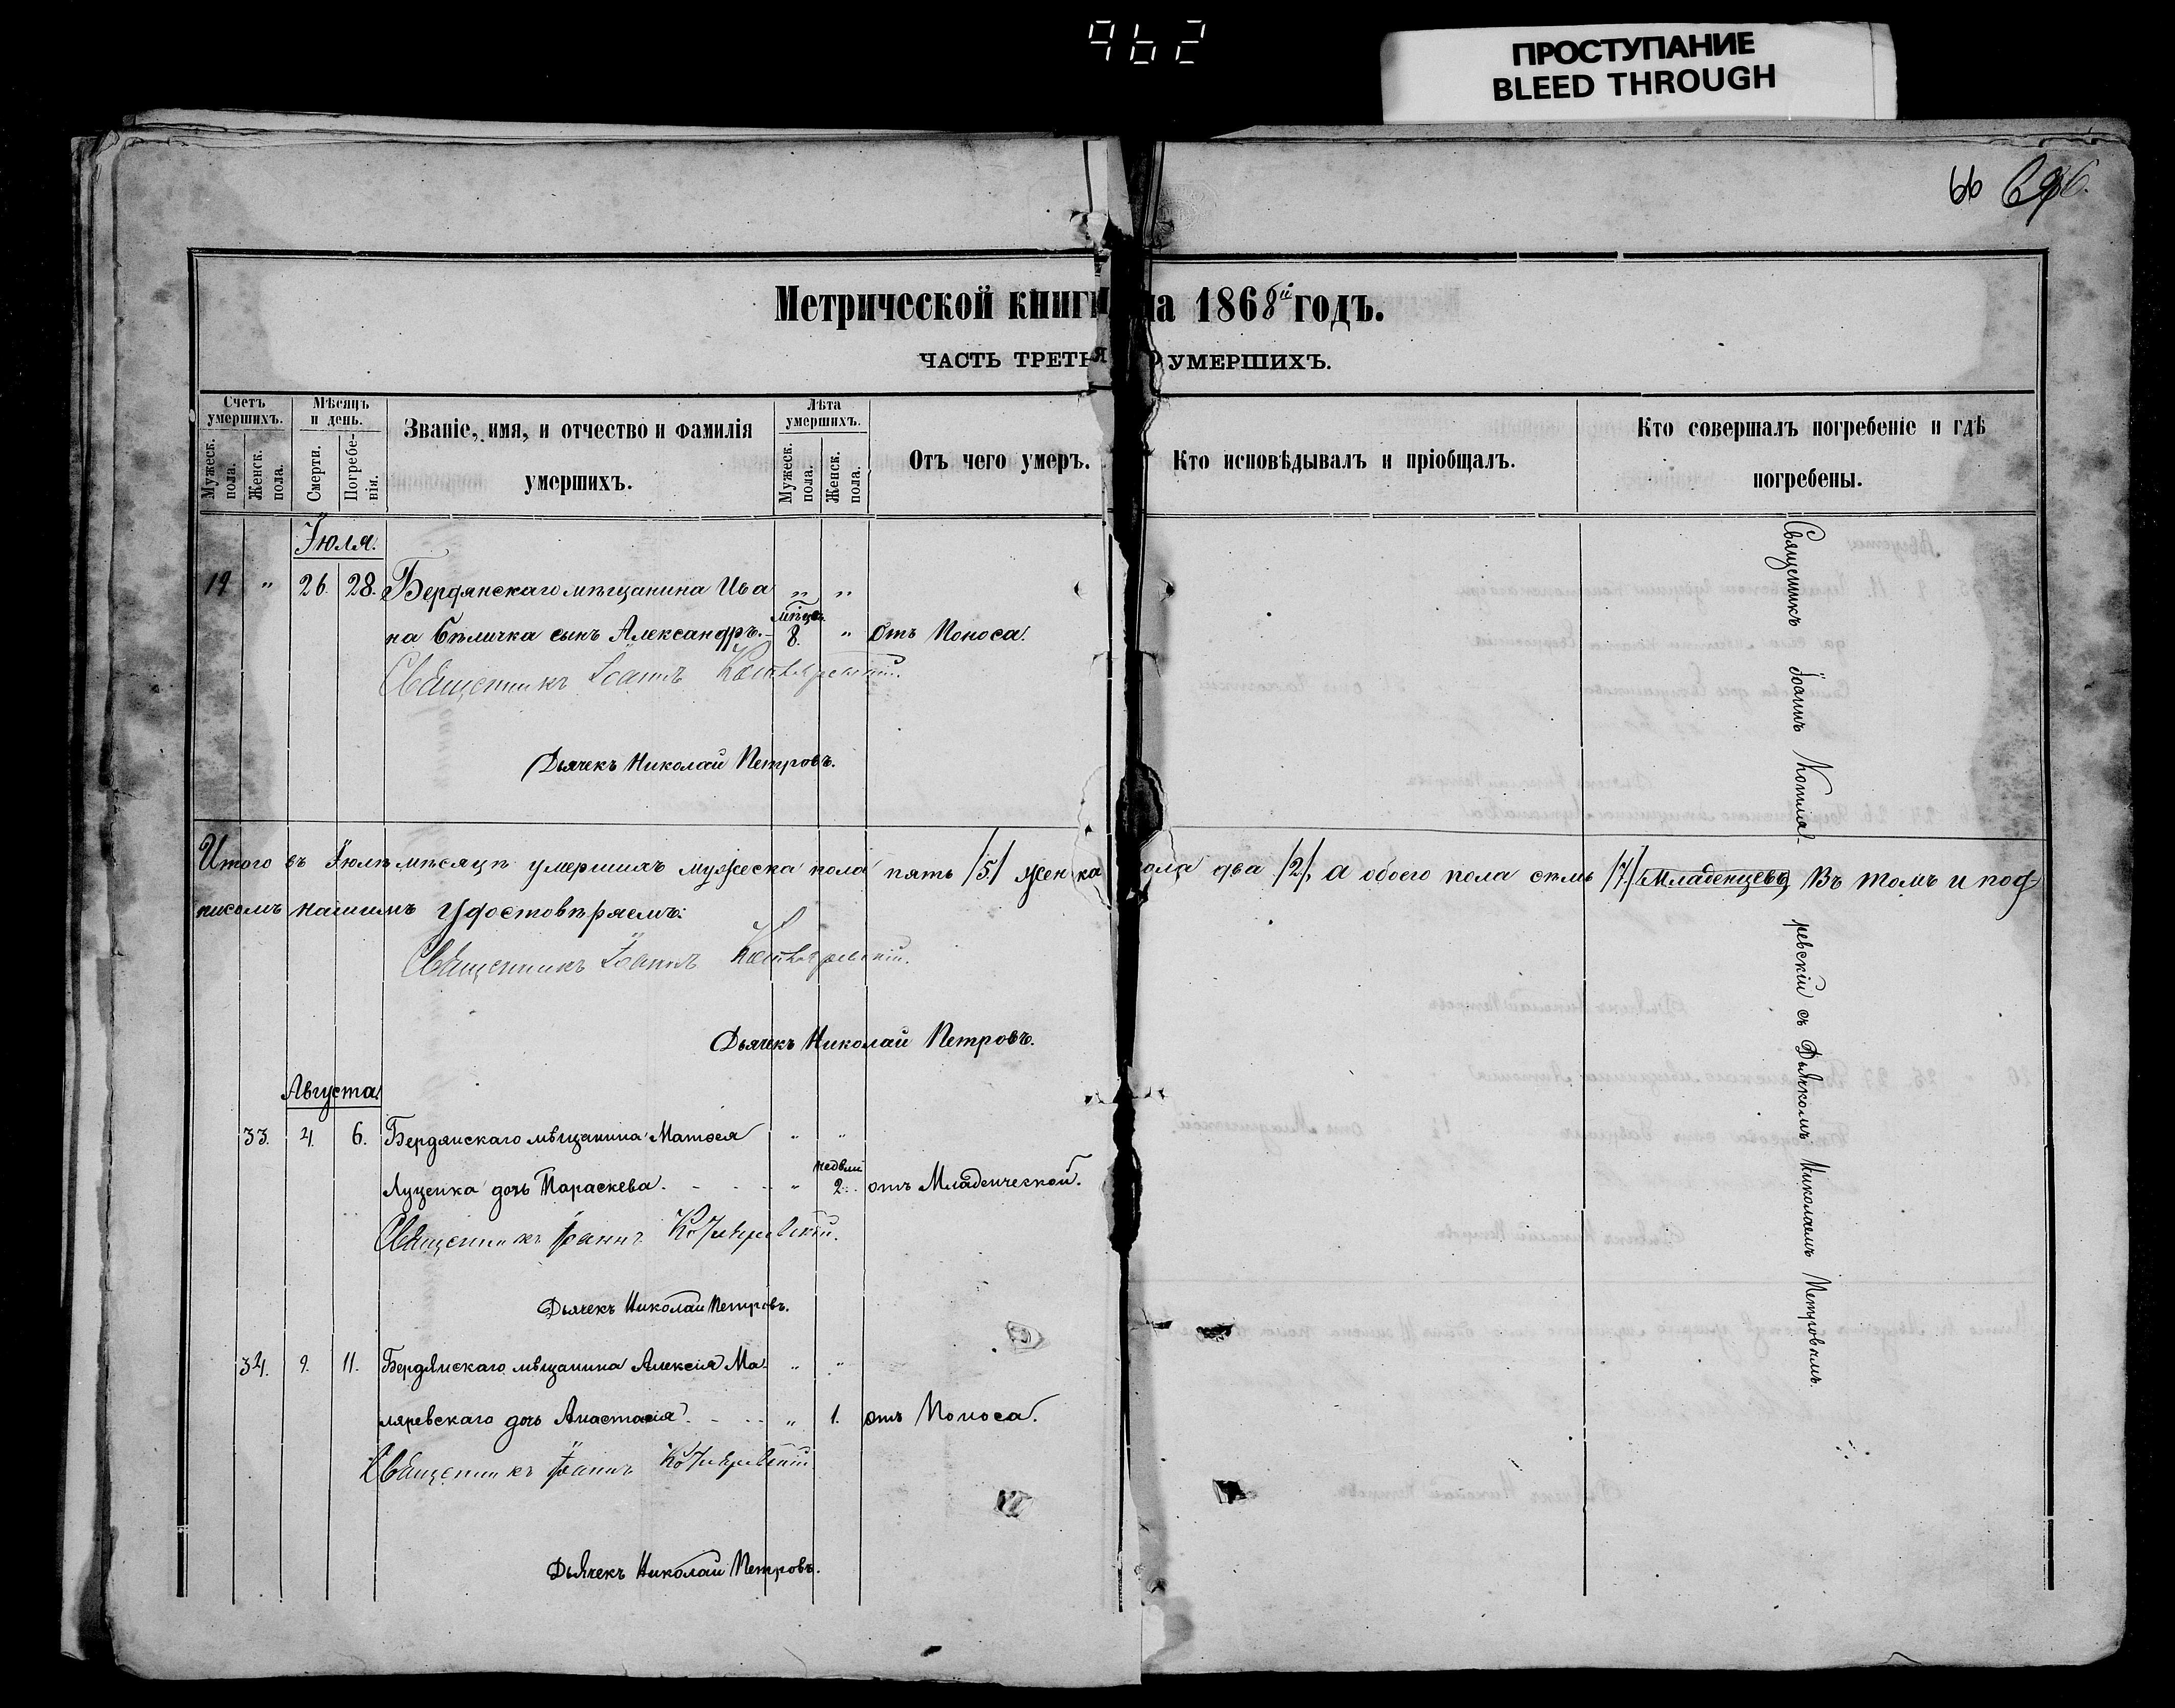 962
ПРОСТУПАНИЕ
BLEED THROUGH
66
Метрической книги на 1868й годъ.
ЧАСТЬ ТРЕТЬЯ О УМЕРШИХЪ.
Счетъ умершихъ.
Мужеск. пола.
Женск. пола.
Мѣсяцъ и день.
Смерти.
Погребенія.
Званіе, имя, и отчество и фамилія
умершихъ.
Лѣта умершихъ.
Мужеск. пола.
Женск. пола.
Отъ чего умеръ.
Кто исповѣдывалъ и пріобщалъ.
Кто совершалъ погребеніе и гдѣ
погребены.
Іюля.
19 " 26. 28. Бердянскаго мѣщанина Ива " "
на Бѣличка сынъ Александръ. - мѣцв. 8. " Отъ Поноса.
Священникъ Іоаннъ Котляревскій.
Дьячекъ Николай Петровъ.
Итого въ Іюлѣ мѣсяцѣ умершихъ мужеска пола пять /5/ женска пола два /2/, а обоего пола семь /7./ Младенцевъ, Въ томъ и под
писомъ нашимъ удостовѣряемъ:
Священникъ Іоаннъ Котляревскій.
Дьячекъ Николай Петровъ.
Августа
33. 4. 6. Бердянскаго мѣщанина Матвея " "
Луценка дочь Параскева. - - - " недѣли 2. отъ Младенческой.
Священникъ Іоаннъ Котляревскій.
Дьячекъ Николай Петровъ.
34. 9. 11. Бердянскаго мѣщанина Алексія Ма " "
ляревскаго дочь Анастасія. - - - " 1. отъ Поноса.
Священникъ Іоаннъ Котляревскій
Дьячекъ Николай Петровъ.
Священникъ Іоаннъ Котляревскій съ Дьячкомъ Николаемъ Петровымъ.